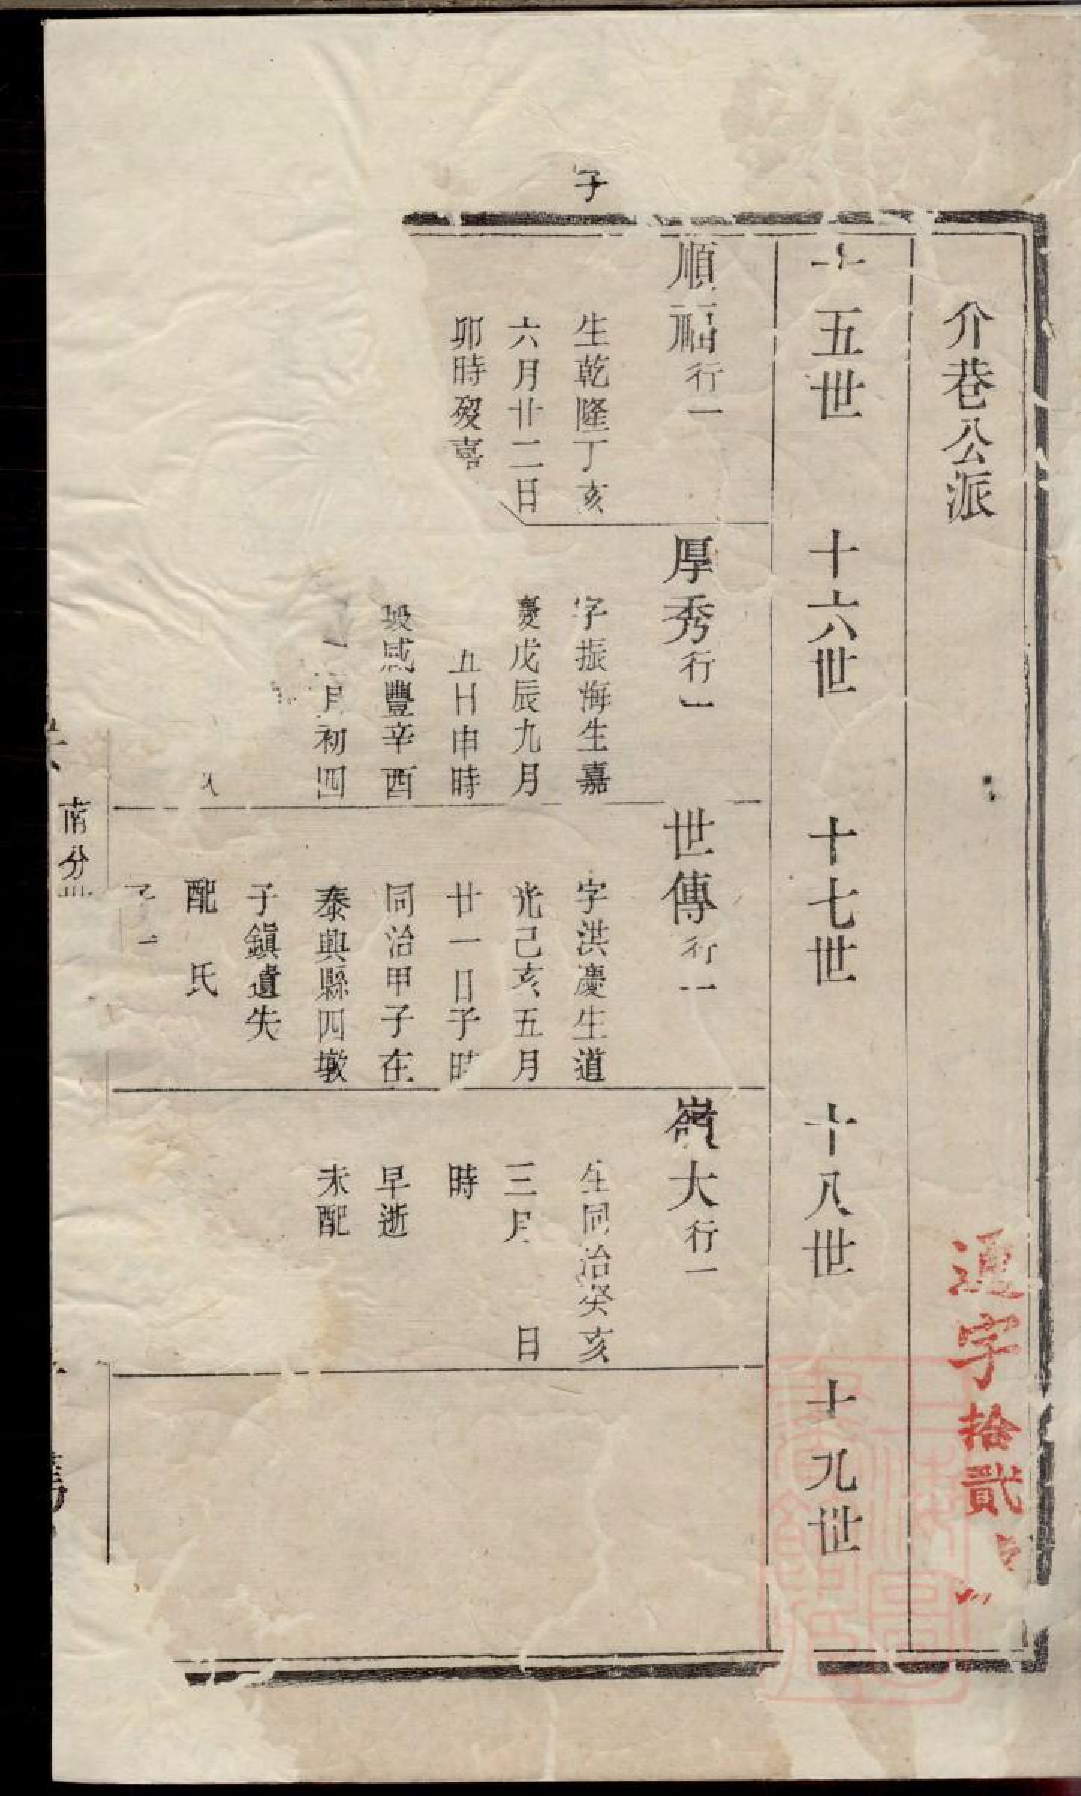 介巷公派
通字拾貳
十五世 十六世 十七世 十八世 十九世
子
順福行一
生乾隆丁亥
六月廿二日
卯時歿嘉
厚秀行一
字振海生嘉
慶戊辰九月
五日申時
歿咸豐辛酉
月初四
世傳行一
字洪慶生道
光己亥五月
廿一日子時
同治甲子在
泰興縣四墩
子鎭遺失
配 氏
子一
大行一
生同治癸亥
三月 日
時
早逝
未配
南分